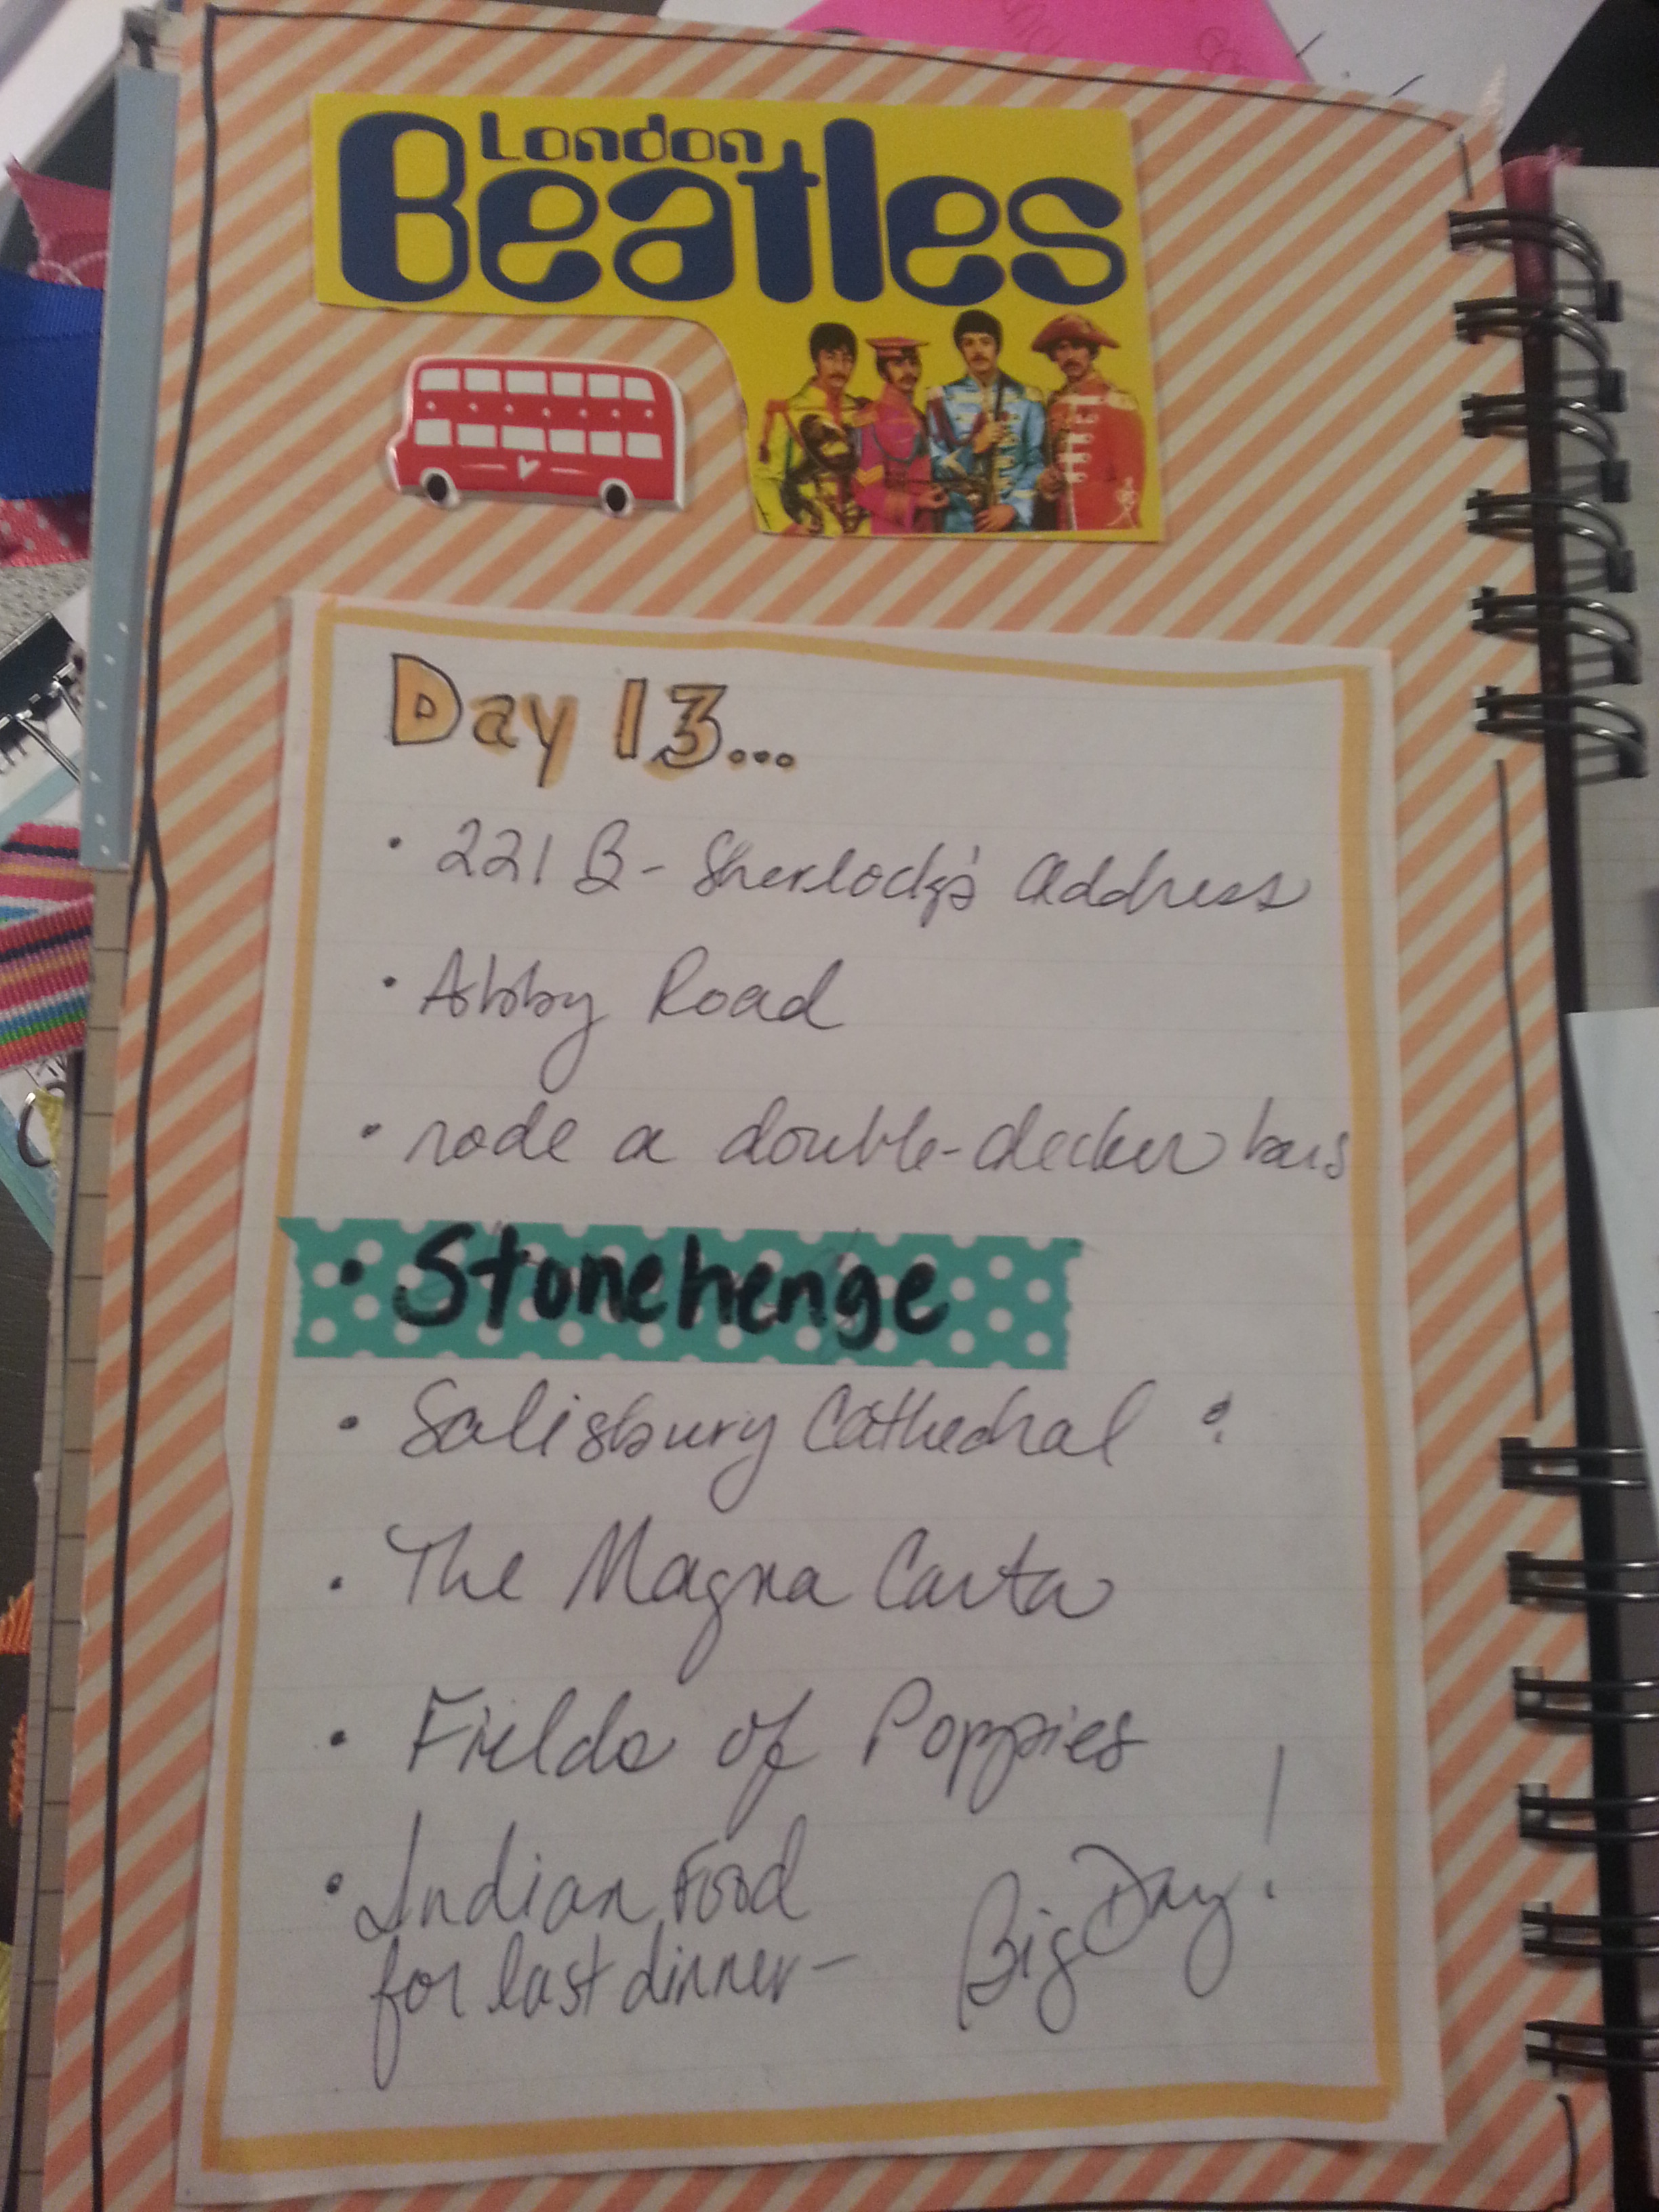 London
Beatles
Day 13...
• 221 B - Sherlock's Address
• Abby Road
• rode a double-decker bus
• Stonehenge
• Salisbury Cathedral &
• The Magna Carta
• Fields of Poppies
• Indian Food
for last dinner -
Big Day!